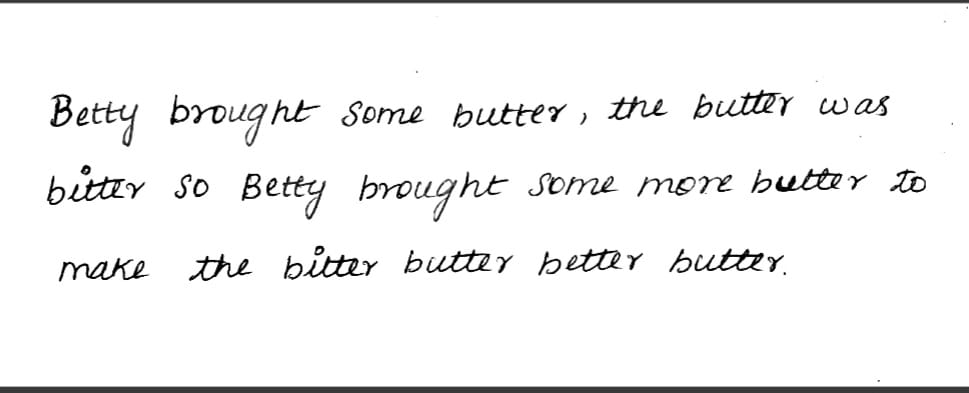 Betty brought some butter, the butter was
bitter so Betty brought some more butter to
make the bitter butter better butter.